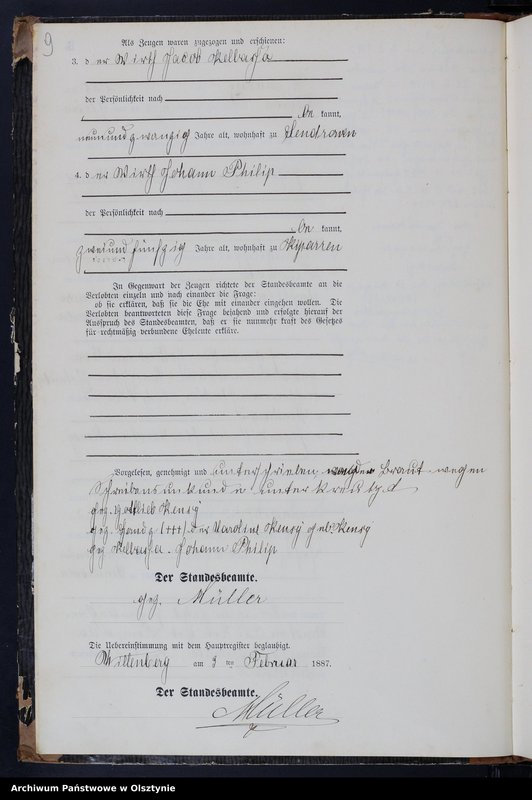 9
Als Zeugen waren zugezogen und erschienen:
3. d er Wirth Jacob Kelbassa
der Persönlichkeit nach
be kannt,
neunundzwanzig Jahre alt, wohnhaft zu Sendrowen
4. d er Wirth Johann Philip
der Persönlichkeit nach
be kannt,
zweiundfünfzig Jahre alt, wohnhaft zu Kiparren
In Gegenwart der Zeugen richtete der Standesbeamte an die
Verlobten einzeln und nach einander die Frage:
ob sie erklären, daß sie die Ehe mit einander eingehen wollen. Die
Verlobten beantworteten diese Frage bejahend und erfolgte hierauf der
Ausspruch des Standesbeamten, daß er sie nunmehr kraft des Gesetzes
für rechtmäßig verbundene Eheleute erkläre.
Vorgelesen, genehmigt und unterschrieben von der Braut wegen
Schreibensunkunde unterkreuzt
gez. Gottlieb
gez. Handz. (+++) der Karoline geb.
gez. Kelbassa. Johann Philip
Der Standesbeamte.
gez. Müller
Die Uebereinstimmung mit dem Hauptregister beglaubigt.
Wittenberg am 3 ten Februar 1887.
Der Standesbeamte.
Müller
Archiwum Państwowe w Olsztynie